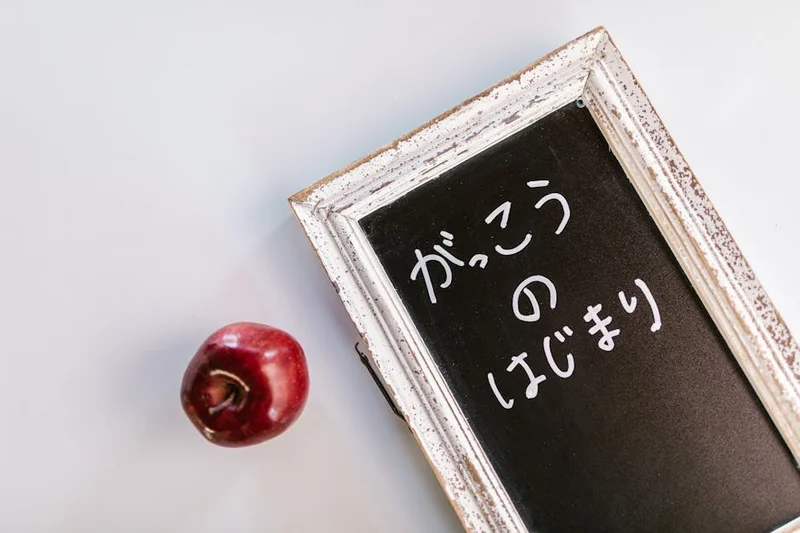 がっこう
の
はじまり